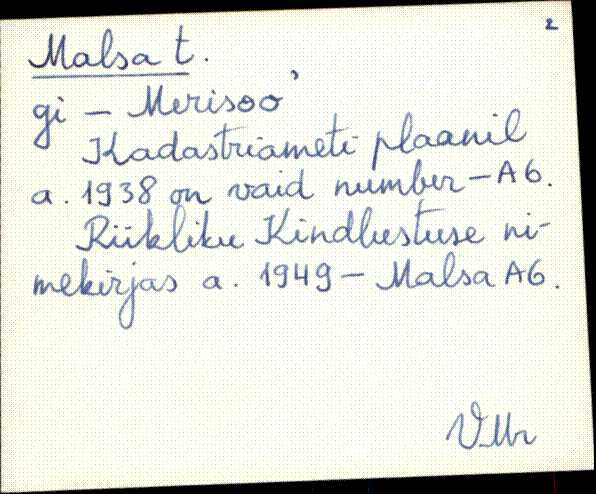 2
Malsa t.
gi — Merisoo'
Kadastriameti plaanil
a. 1938 on vaid number — A6.
Riikliku Kindlustuse ni-
mekirjas a. 1949 — Malsa A6.